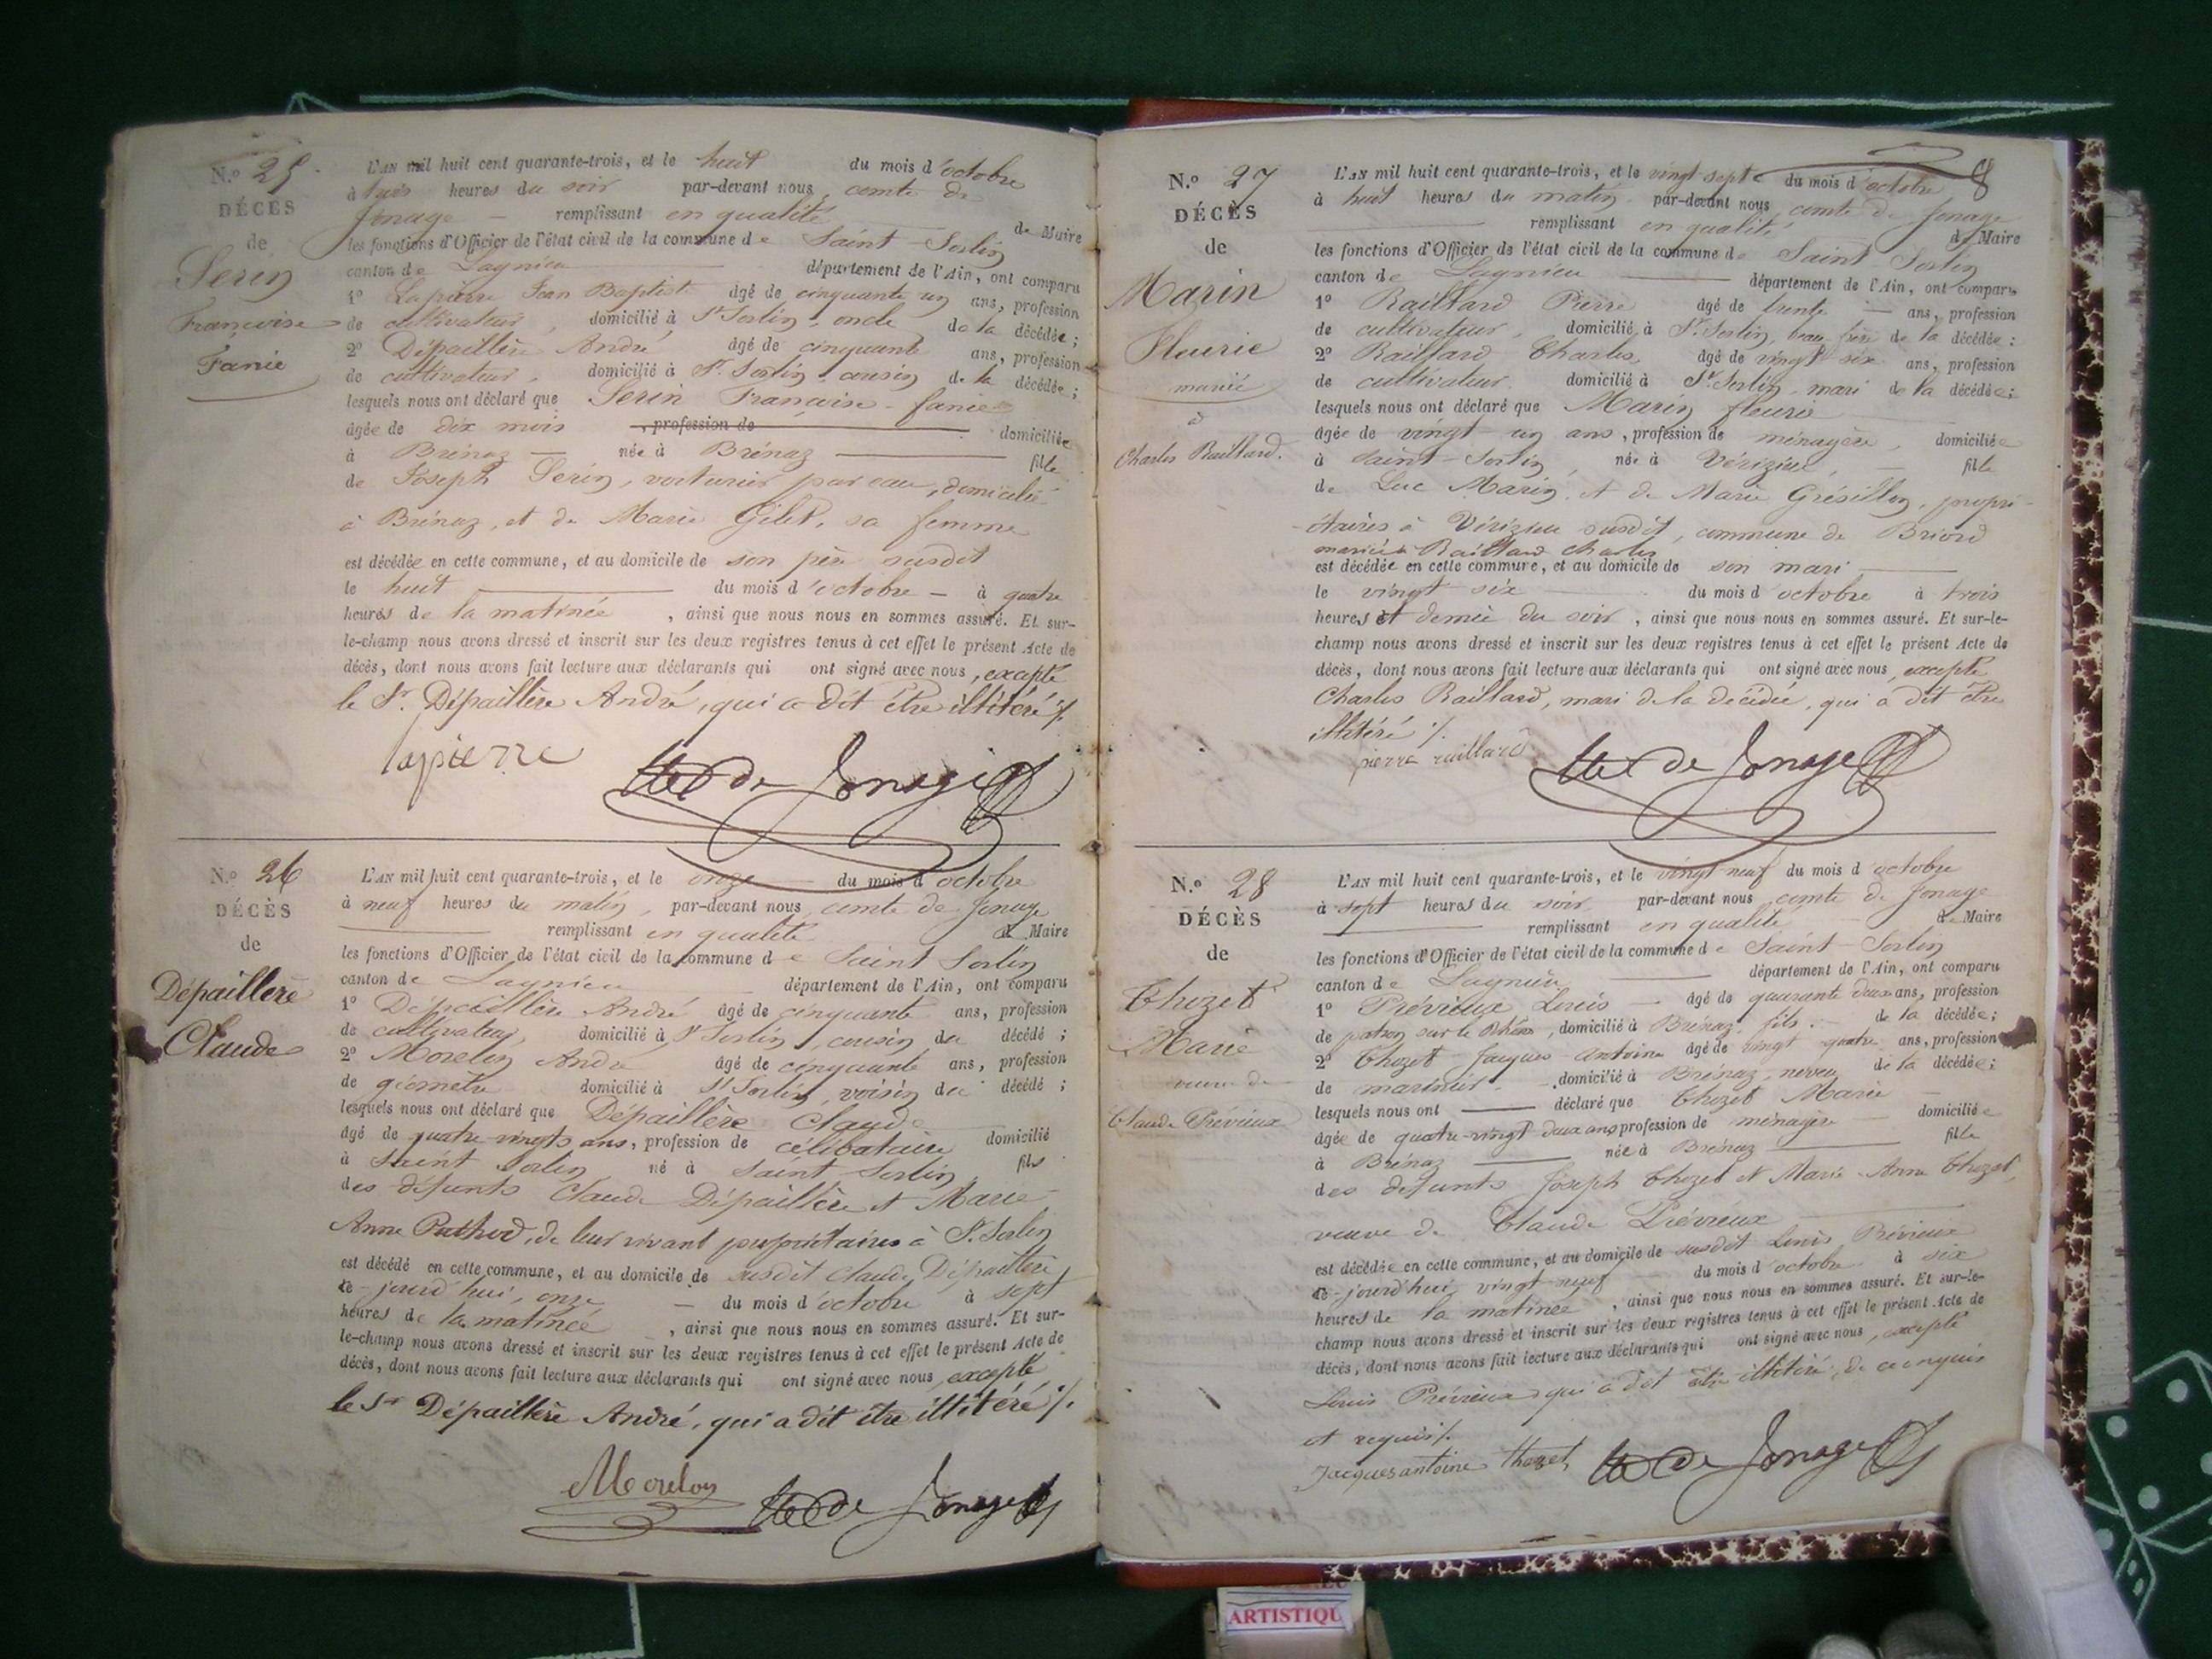 N.º 25.
DÉCÈS
de
Serin
Françoise
Fanie
L'AN mil huit cent quarante-trois, et le huit du mois d'octobre
à trois heures du soir par-devant nous, comte de
Jonage — remplissant en qualité de Maire
les fonctions d'Officier de l'état civil de la commune de Saint-Sorlin
canton de Lagnieu département de l'Ain, ont comparu
1º Lapierre Jean Baptiste âgé de cinquante un ans, profession
de cultivateur, domicilié à St Sorlin, oncle de la décédée;
2º Dépaillère André âgé de cinquante ans, profession
de cultivateur, domicilié à St. Sorlin, cousin de la décédée;
lesquels nous ont déclaré que Serin Françoise - fanie
âgée de dix mois , profession de domiciliée
à Brénaz — née à Brénaz fille
de Joseph Serin, voiturier par eau, domicilié
à Brénaz, et de Marie Gilet, sa femme
est décédée en cette commune, et au domicile de son père susdit
le huit du mois d'octobre — à quatre
heures de la matinée , ainsi que nous nous en sommes assuré. Et sur-
le-champ nous avons dressé et inscrit sur les deux registres tenus à cet effet le présent Acte de
décès, dont nous avons fait lecture aux déclarants qui ont signé avec nous, excepté
le Sr. Dépaillère André, qui a dit être illitéré ./.
lapierre
Cte de Jonage
N.º 26
DÉCÈS
de
Dépaillère
Claude
L'AN mil huit cent quarante-trois, et le onze du mois d'octobre
à neuf heures du matin, par-devant nous, comte de Jonage
remplissant en qualité de Maire
les fonctions d'Officier de l'état civil de la commune de Saint Sorlin
canton de Lagnieu département de l'Ain, ont comparu
1º Dépaillère André âgé de cinquante ans, profession
de cultivateur, domicilié à St Sorlin, cousin du décédé;
2º Morelon André âgé de cinquante ans, profession
de géomètre domicilié à St Sorlin, voisin du décédé;
lesquels nous ont déclaré que Dépaillère Claude
âgé de quatre-vingts ans, profession de célibataire domicilié
à Saint Sorlin né à Saint-Sorlin, fils
des défunts Claude Dépaillère et Marie-
Anne Puthod, de leur vivant propriétaires à St. Sorlin
est décédé en cette commune, et au domicile de susdit Claude Dépaillère
ce-jourd'hui, onze — du mois d'octobre à sept
heures de la matinée , ainsi que nous nous en sommes assuré. Et sur-
le-champ nous avons dressé et inscrit sur les deux registres tenus à cet effet le présent Acte de
décès, dont nous avons fait lecture aux déclarants qui ont signé avec nous, excepté
le Sr Dépaillère André, qui a dit être illitéré ./.
Morelon
Cte de Jonage
8
N.º 27
DÉCÈS
de
Marin
Fleurie
mariée
à
Charles Raillard.
L'AN mil huit cent quarante-trois, et le vingt sept du mois d'octobre
à huit heures du matin par-devant nous comte de Jonage
remplissant en qualité de Maire
les fonctions d'Officier de l'état civil de la commune de Saint Sorlin
canton de Lagnieu département de l'Ain, ont comparu
1º Raillard Pierre âgé de trente — ans, profession
de cultivateur, domicilié à St. Sorlin, beau frère de la décédée;
2º Raillard Charles, âgé de vingt six ans, profession
de cultivateur domicilié à St. Sorlin - mari de la décédée;
lesquels nous ont déclaré que Marin fleurie
âgée de vingt un ans, profession de ménagère, domiciliée
à Saint-Sorlin, née à Vérizieu, fille
de Luc Marin, et de Marie Grésillon, propri-
étaires à Vérizieu susdit, commune de Briord
mariée à Raillard Charles
est décédée en cette commune, et au domicile de son mari
le vingt six du mois d'octobre à trois
heures et demie du soir, ainsi que nous nous en sommes assuré. Et sur-le-
champ nous avons dressé et inscrit sur les deux registres tenus à cet effet le présent Acte de
décès, dont nous avons fait lecture aux déclarants qui ont signé avec nous, excepté
Charles Raillard, mari de la décédée, qui a dit être
illitéré ./.
pierre raillard
Cte de Jonage
N.º 28
DÉCÈS
de
Thozet
Marie
veuve de
Claude Prévieux
L'AN mil huit cent quarante-trois, et le vingt neuf du mois d'octobre
à sept heures du soir par-devant nous comte de Jonage
remplissant en qualité de Maire
les fonctions d'Officier de l'état civil de la commune de Saint-Sorlin
canton de Lagnieu département de l'Ain, ont comparu
1º Prévieux Louis — âgé de quarante deux ans, profession
de patron sur le Rhône, domicilié à Brénaz, fils de la décédée;
2º Thozet Jacques-antoine âgé de vingt quatre ans, profession
de marinier domicilié à Brénaz, neveu de la décédée;
lesquels nous ont déclaré que Thozet Marie
âgée de quatre-vingt deux ans profession de ménagère domiciliée
à Brénaz née à Brénaz fille
des défunts Joseph Thozet et Marie-Anne Thozet,
veuve de Claude Prévieux
est décédée en cette commune, et au domicile de susdit Louis Prévieux
ce-jourd'hui vingt-neuf du mois d'octobre à six
heures de la matinée , ainsi que nous nous en sommes assuré. Et sur-le-
champ nous avons dressé et inscrit sur les deux registres tenus à cet effet le présent Acte de
décès, dont nous avons fait lecture aux déclarants qui ont signé avec nous, excepté
Louis Prévieux qui a dit être illitéré, de ce enquis
et requis ./.
Jacques antoine thozet
Cte de Jonage
ARTISTIQU